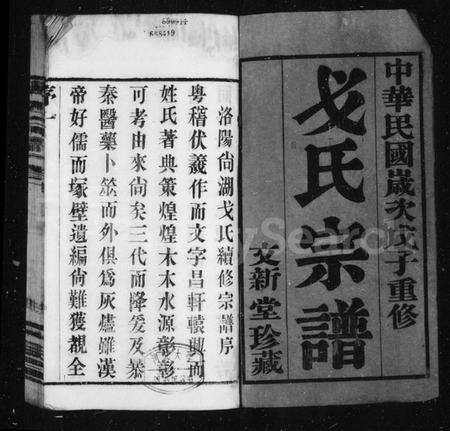 中華民國歲次戊子重修
戈氏宗譜
文新堂珍藏
洛陽尙湖戈氏續修宗譜序
粤稽伏羲作而文字昌軒轅興而
姓氏著典策煌煌木木水源彰彰
可考由來尙矣三代而降爰及暴
秦醫藥卜筮而外俱爲灰燼雖漢
帝好儒而塚壁遺編尙難獲覩全
序一
668419